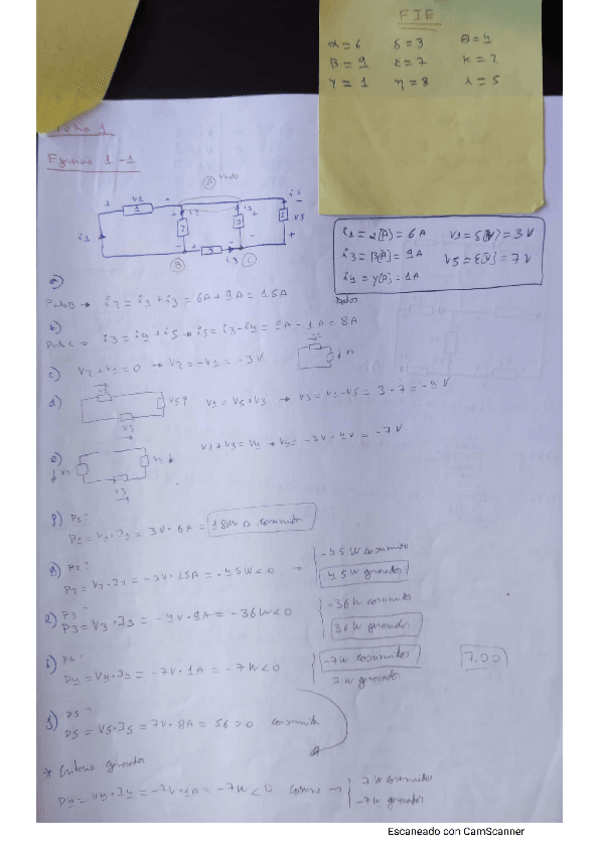 FIE
α=6 δ=3 θ=4
β=9 ε=7 κ=2
γ=1 η=8 λ=5
Tema 1
Ejercicio 1-1
i1 = α[A] = 6A V1 = δ[V] = 3V
i3 = β[A] = 9A V5 = ε[V] = 7V
i4 = γ[A] = 1A
Datos
a)
Punto B → i2 = i1 + i3 = 6A + 9A = 15A
b)
Punto C = i3 = i4 + i5 → i5 = i3 - i4 = 9A - 1A = 8A
c) V2 + V1 = 0 → V2 = -V1 = -3V
d) V1 = V5 + V3 → V3 = V1 - V5 = 3 - 7 = -4V
e) V2 + V3 = V4 → V4 = -3V - 4V = -7V
f) P1:
P1 = V1·I1 = 3V·6A = 18W > 0 consumidos
g) P2:
P2 = V2·I2 = -3V·15A = -45W < 0 → -45W consumidos
45W generador
h) P3:
P3 = V3·I3 = -4V·9A = -36W < 0 -36W consumidos
36W generador
i) P4:
P4 = V4·I4 = -7V·1A = -7W < 0 -7W consumidos
7W generador
7.00
j) P5:
P5 = V5·I5 = 7V·8A = 56 > 0 consumidos
* Criterio generador
P4 = V4·I4 = -7V·1A = -7W < 0 consume → 7W consumidos
-7W generador
Escaneado con CamScanner